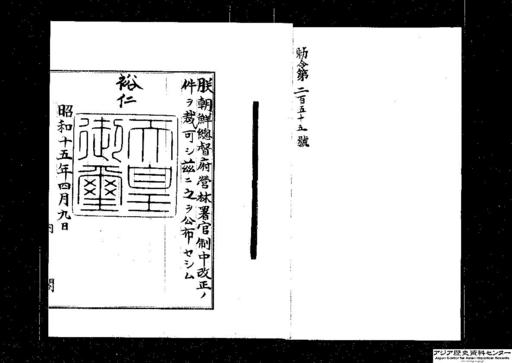 勅令第二百五十五號
朕朝鮮總督府營林署官制中改正ノ
件ヲ裁可シ茲ニ之ヲ公布セシム
裕仁
天皇
御璽
昭和十五年四月九日
内閣
アジア歴史資料センター
Japan Center for Asian Historical Records